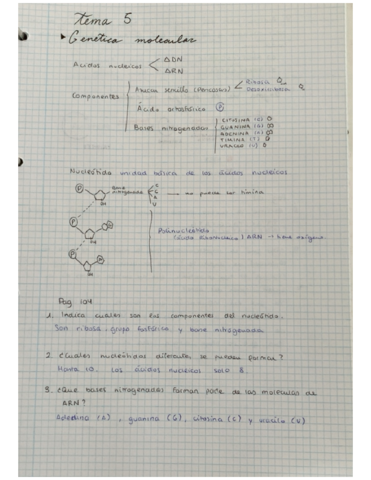 tema 5
Genética molecular
Ácidos nucleicos
ADN
ARN
Componentes
Azúcar sencillo (Pentosas)
Ribosa
Desoxirribosa
Ácido ortofosfórico P
Bases nitrogenadas
CITOSINA (C)
GUANINA (G)
ADENINA (A)
TIMINA (T)
URACILO (U)
Nucleótido unidad básica de los ácidos nucleicos
P
Base nitrogenada
no puede ser timina
P
Polinucleótido
ARN
P
P
Pag 104
1. Indica cuales son los componentes del nucleótido.
Son ribosa, grupo fosfórico y base nitrogenada
2. ¿Cuales nucleótidos diferentes se pueden formar?
Hasta 10. Los ácidos nucleicos solo 8.
3. ¿Que bases nitrogenadas forman parte de las moleculas de
ARN?
(A), guanina (G), citosina (C) y uracilo (U)